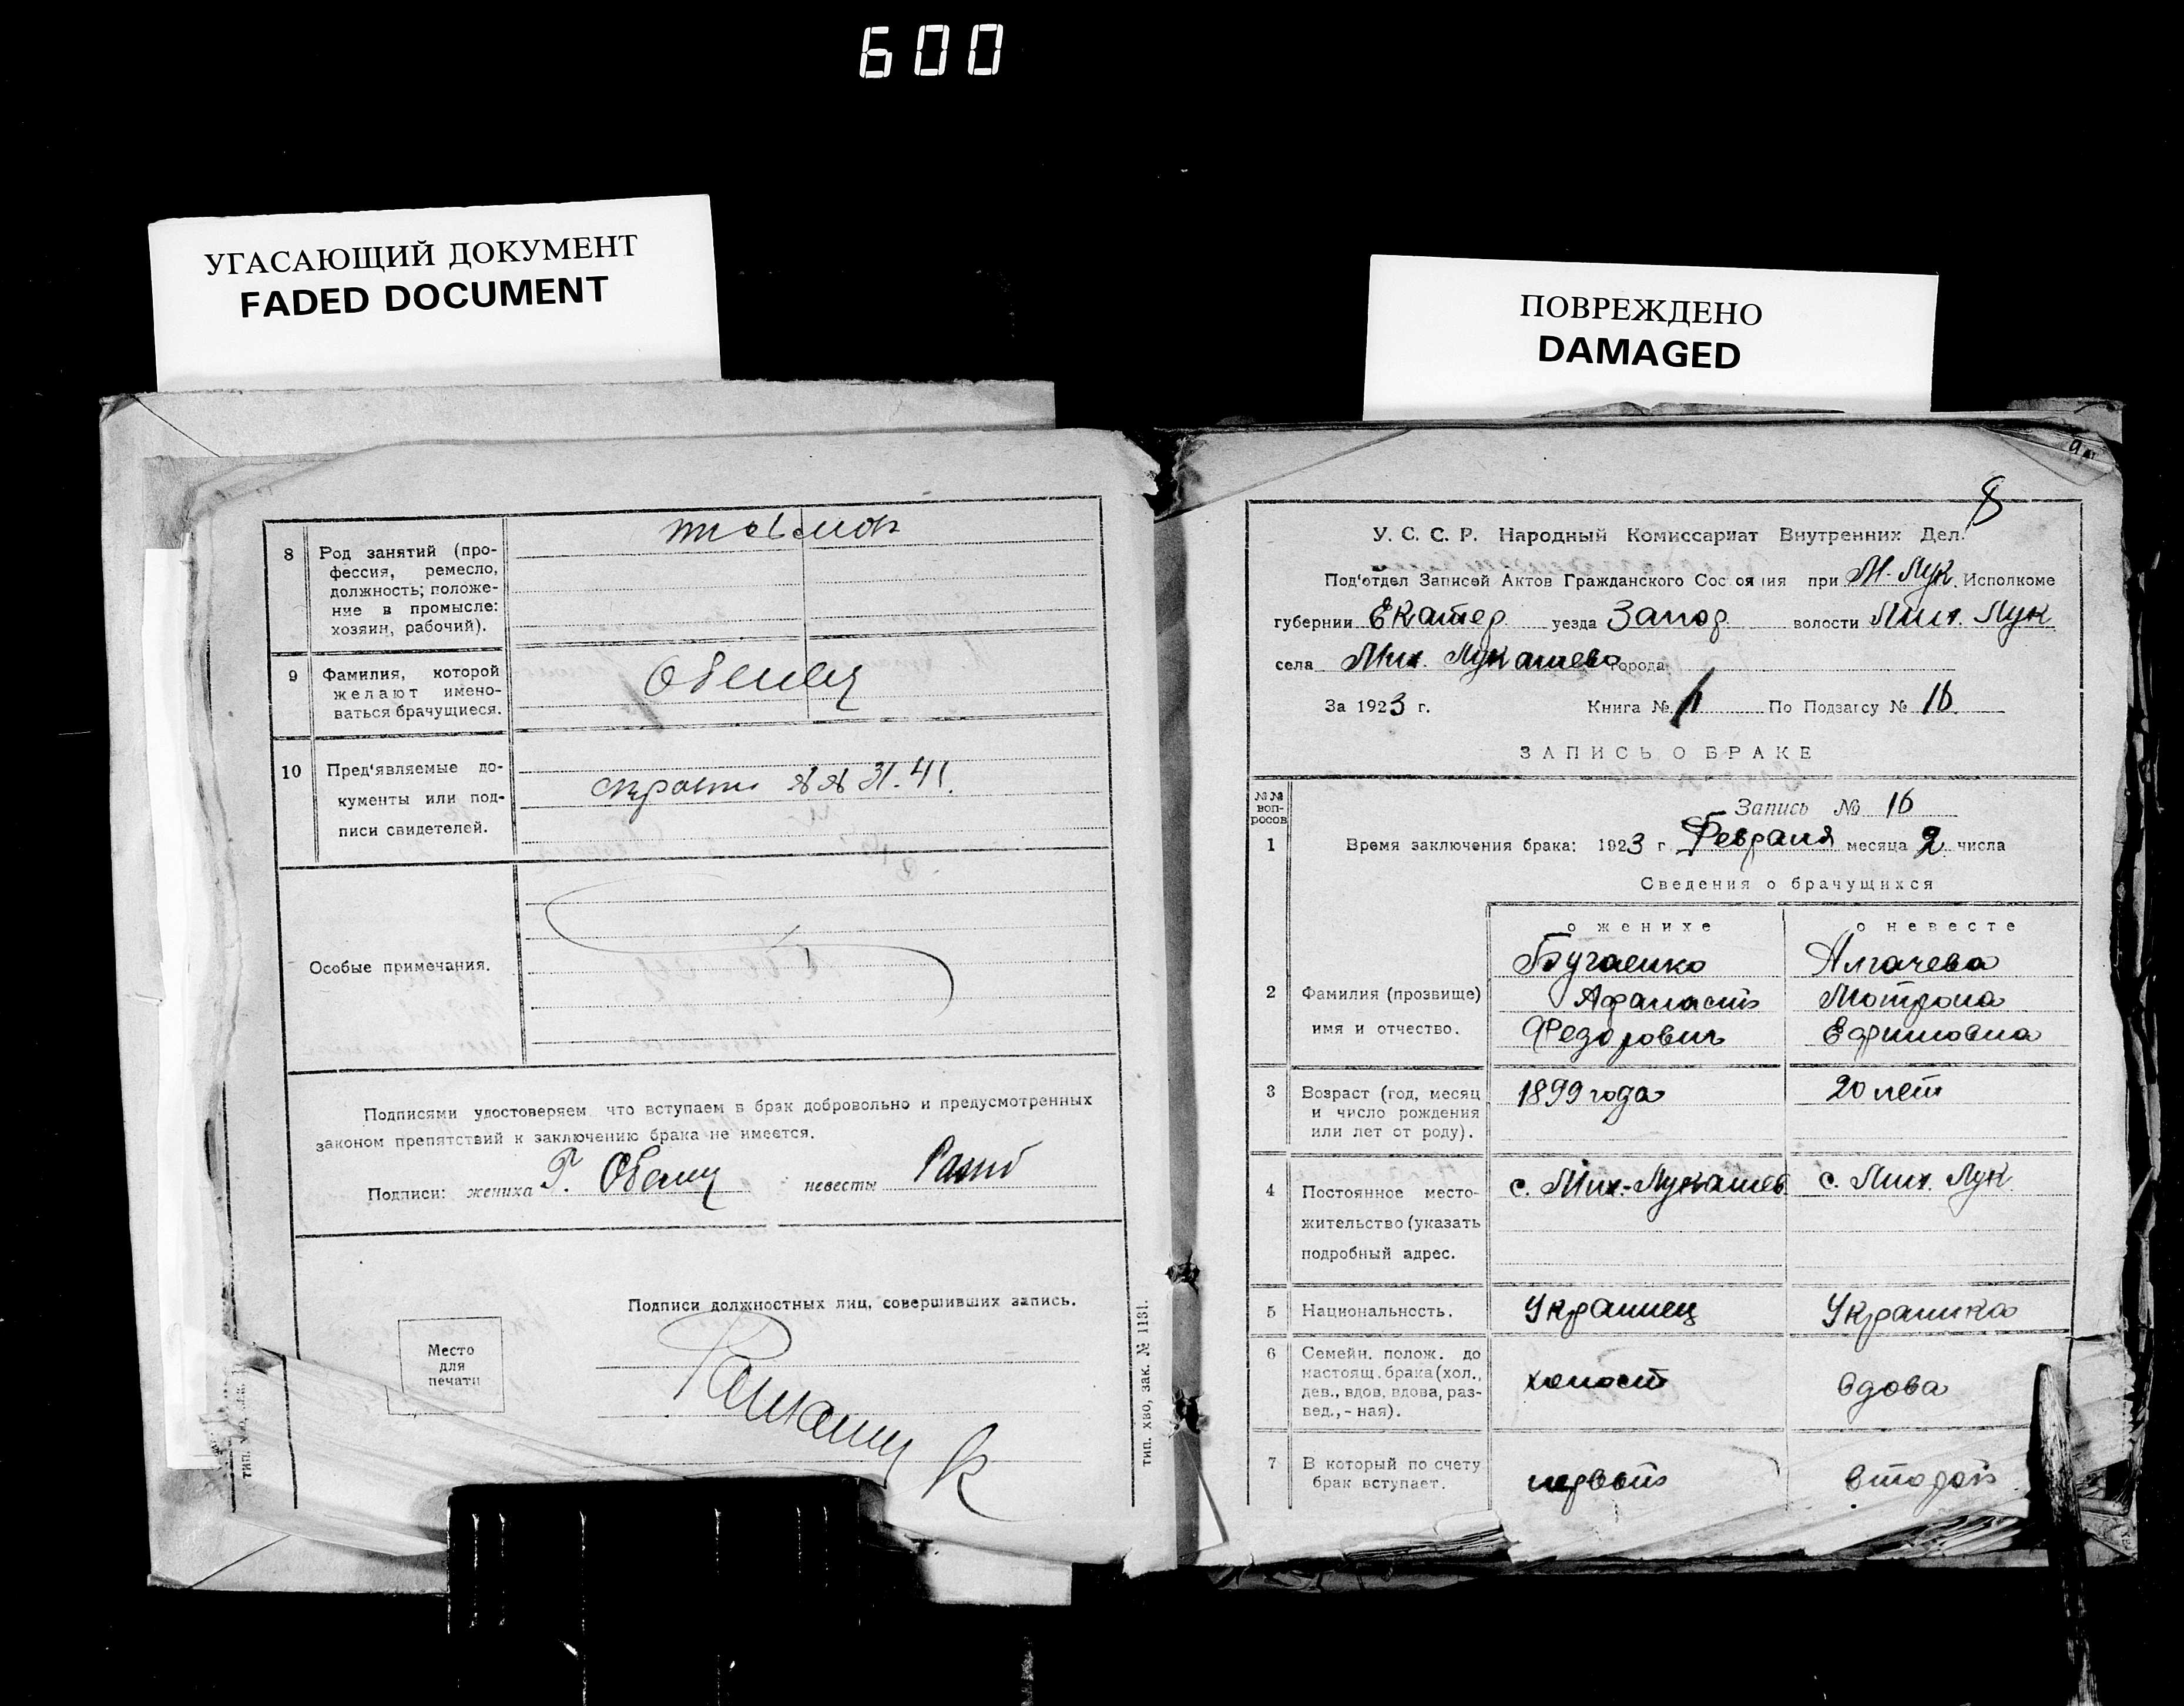 600
УГАСАЮЩИЙ ДОКУМЕНТ
FADED DOCUMENT
ПОВРЕЖДЕНО
DAMAGED
8 Род занятий (про-
фессия, ремесло,
должность; положе-
ние в промысле:
хозяин, рабочий).
9 Фамилия, которой
желают имено-
ваться брачущиеся.
10 Пред'являемые до-
кументы или под-
писи свидетелей.
31. 41.
Особые примечания.
Подписями удостоверяем что вступаем в брак добровольно и предусмотренных
законом препятствий к заключению брака не имеется.
Подписи: жениха невесты
Подписи должностных лиц, совершивших запись.
Место
для
печати
тип. хво, зак. № 1131.
8
У. С. С. Р. Народный Комиссариат Внутренних Дел.
Под'отдел Записей Актов Гражданского Состояния при М. Лук. Исполкоме
губернии Екатер. уезда Запор. волости Мих. Лук.
села Мих. Лукашево города
За 1923 г. Книга № По Подзагсу № 16
ЗАПИСЬ О БРАКЕ
№№
воп-
росов
Запись № 16
1 Время заключения брака: 1923 г. Февраля месяца 2 числа
Сведения о брачущихся
о женихе о невесте
2 Фамилия (прозвище)
имя и отчество.
Бугаенко
Афанасий
Федорович
Алгачева
Мотрона
Ефимовна
3 Возраст (год, месяц
и число рождения
или лет от роду).
1899 года 20 лет
4 Постоянное место-
жительство (указать
подробный адрес.
с. Мих.-Лукашев с. Мих. Лук.
5 Национальность. Украинец Украинка
6 Семейн. полож. до
настоящ. брака (хол.,
дев., вдов, вдова, раз-
вед., - ная).
холост вдова
7 В который по счету
брак вступает.
первый второй